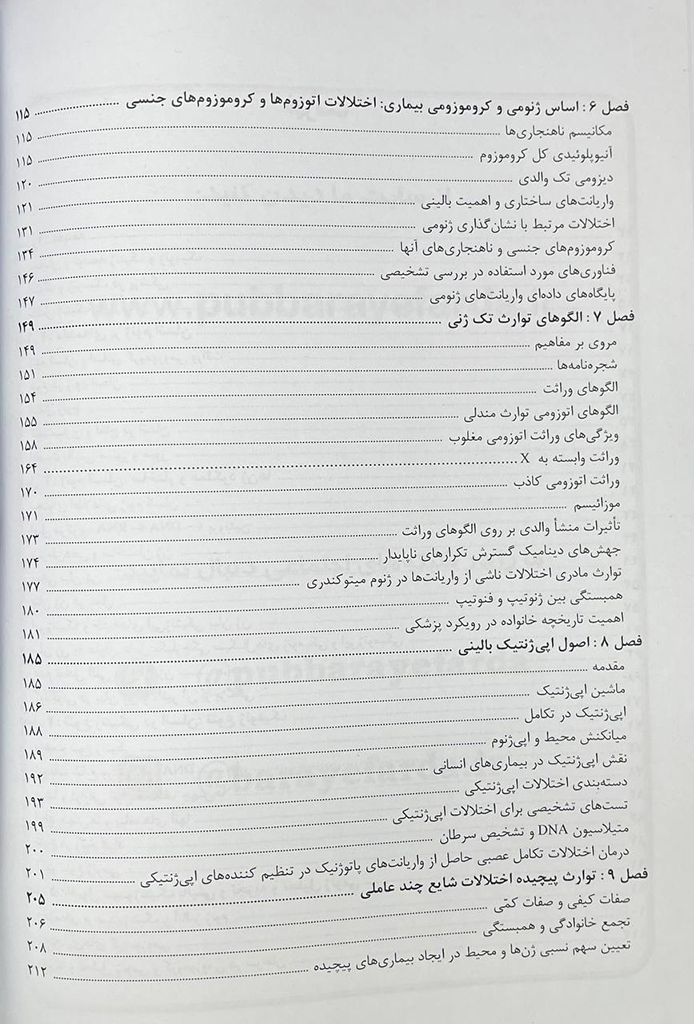 فصل ۶ : اساس ژنومی و کروموزومی بیماری: اختلالات اتوزوم‌ها و کروموزوم‌های جنسی ........ ۱۱۵
مکانیسم ناهنجاری‌ها ........ ۱۱۵
آنیوپلوئیدی کل کروموزوم ........ ۱۱۵
دیزومی تک والدی ........ ۱۲۰
واریانت‌های ساختاری و اهمیت بالینی ........ ۱۲۱
اختلالات مرتبط با نشان‌گذاری ژنومی ........ ۱۳۱
کروموزوم‌های جنسی و ناهنجاری‌های آنها ........ ۱۳۴
فناوری‌های مورد استفاده در بررسی تشخیصی ........ ۱۴۶
پایگاه‌های داده‌ای واریانت‌های ژنومی ........ ۱۴۷
فصل ۷ : الگوهای توارث تک ژنی ........ ۱۴۹
مروی بر مفاهیم ........ ۱۴۹
شجره‌نامه‌ها ........ ۱۵۱
الگوهای وراثت ........ ۱۵۴
الگوهای اتوزومی توارث مندلی ........ ۱۵۵
ویژگی‌های وراثت اتوزومی مغلوب ........ ۱۵۸
وراثت وابسته به X ........ ۱۶۴
وراثت اتوزومی کاذب ........ ۱۷۰
موزائیسم ........ ۱۷۱
تأثیرات منشأ والدی بر روی الگوهای وراثت ........ ۱۷۳
جهش‌های دینامیک گسترش تکرارهای ناپایدار ........ ۱۷۴
توارث مادری اختلالات ناشی از واریانت‌ها در ژنوم میتوکندری ........ ۱۷۷
همبستگی بین ژنوتیپ و فنوتیپ ........ ۱۸۰
اهمیت تاریخچه خانواده در رویکرد پزشکی ........ ۱۸۱
فصل ۸ : اصول اپی‌ژنتیک بالینی ........ ۱۸۵
مقدمه ........ ۱۸۵
ماشین اپی‌ژنتیک ........ ۱۸۶
اپی‌ژنتیک در تکامل ........ ۱۸۸
میانکنش محیط و اپی‌ژنوم ........ ۱۸۹
نقش اپی‌ژنتیک در بیماری‌های انسانی ........ ۱۹۲
دسته‌بندی اختلالات اپی‌ژنتیکی ........ ۱۹۳
تست‌های تشخیصی برای اختلالات اپی‌ژنتیکی ........ ۱۹۹
متیلاسیون DNA و تشخیص سرطان ........ ۲۰۰
درمان اختلالات تکامل عصبی حاصل از واریانت‌های پاتوژنیک در تنظیم کننده‌های اپی‌ژنتیکی ........ ۲۰۱
فصل ۹ : توارث پیچیده اختلالات شایع چند عاملی ........ ۲۰۵
صفات کیفی و صفات کمّی ........ ۲۰۶
تجمع خانوادگی و همبستگی ........ ۲۰۸
تعیین سهم نسبی ژن‌ها و محیط در ایجاد بیماری‌های پیچیده ........ ۲۱۲